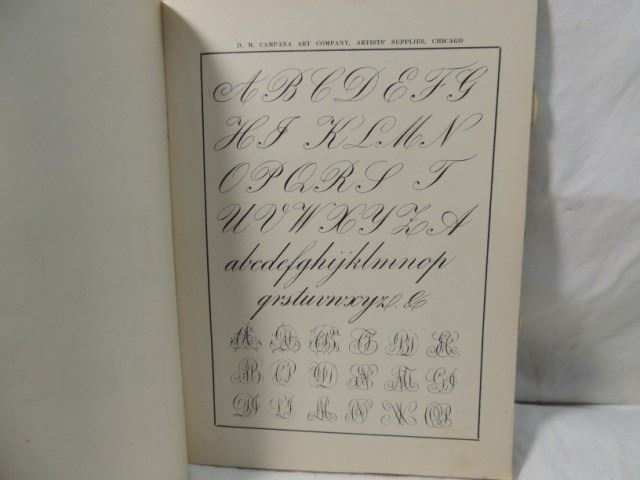 D. M. CAMPANA ART COMPANY, ARTISTS' SUPPLIES, CHICAGO
A B C D E F G
H I K L M N
O P Q R S T
U V W X Y Z A
abcdefghijklmnop
qrstuvwxyz. &